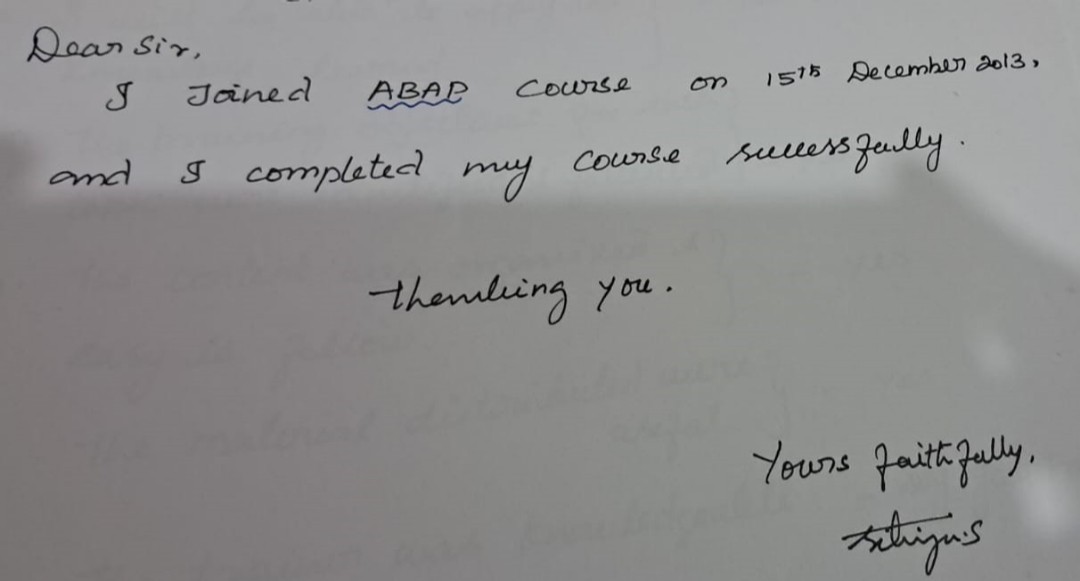 Dear Sir,
I Joined ABAP Course on 15th December 2013,
and I completed my course successfully.
Thanking you.
Yours faithfully,